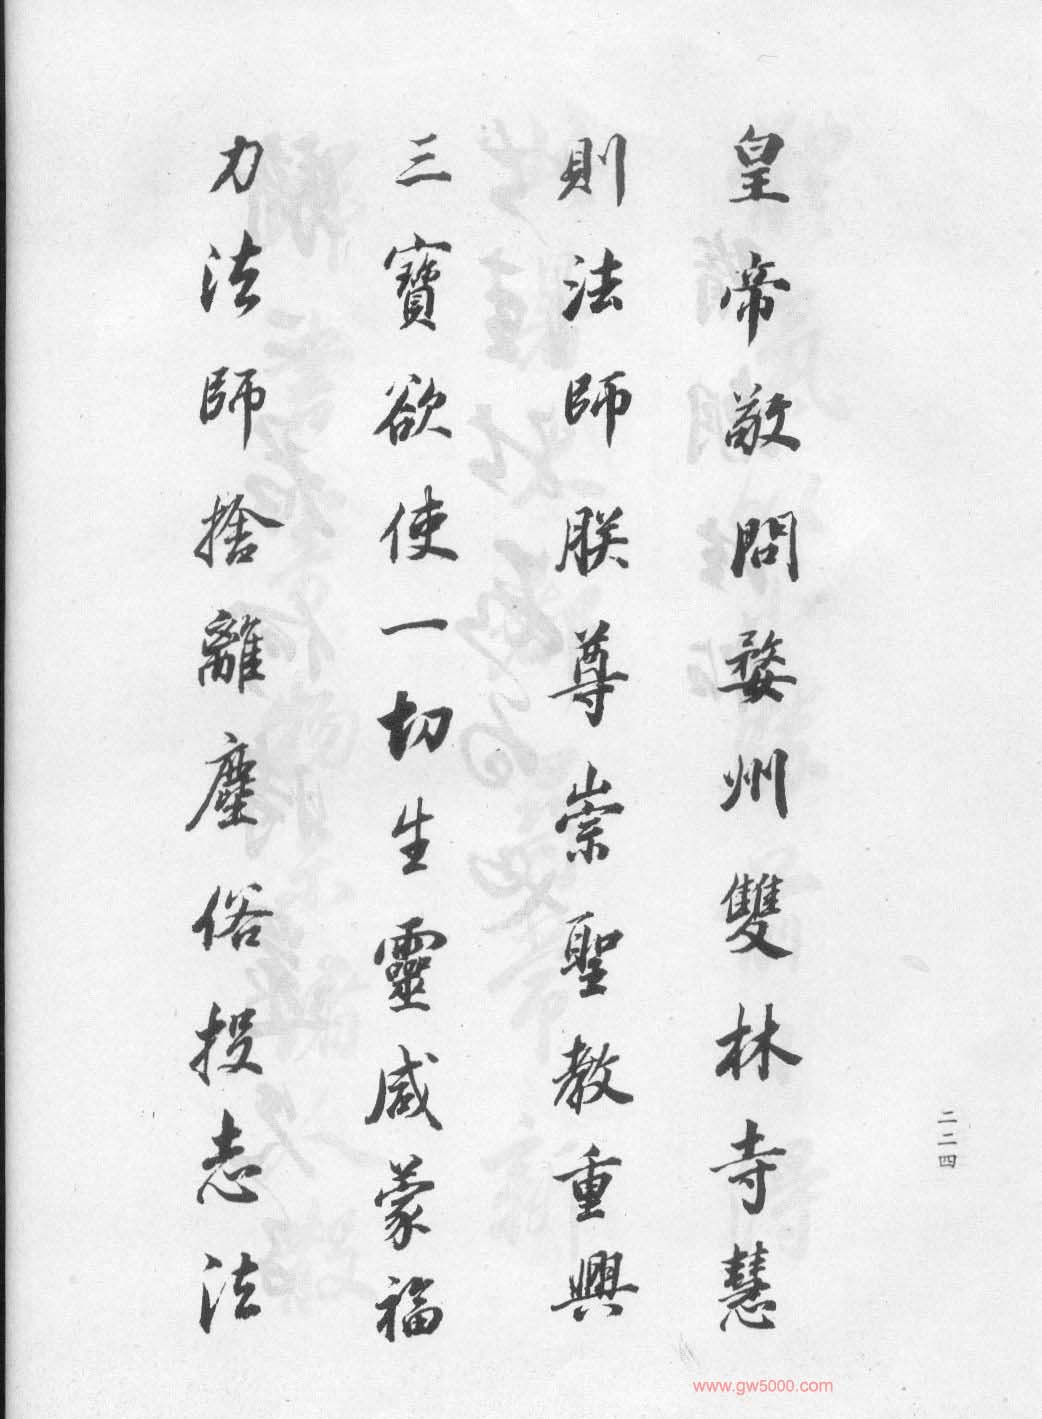 皇帝敬問婺州雙林寺慧
則法師朕尊崇聖教重興
三寶欲使一切生靈咸蒙福
力法師捨離塵俗投志法
二二四
www.gw5000.com